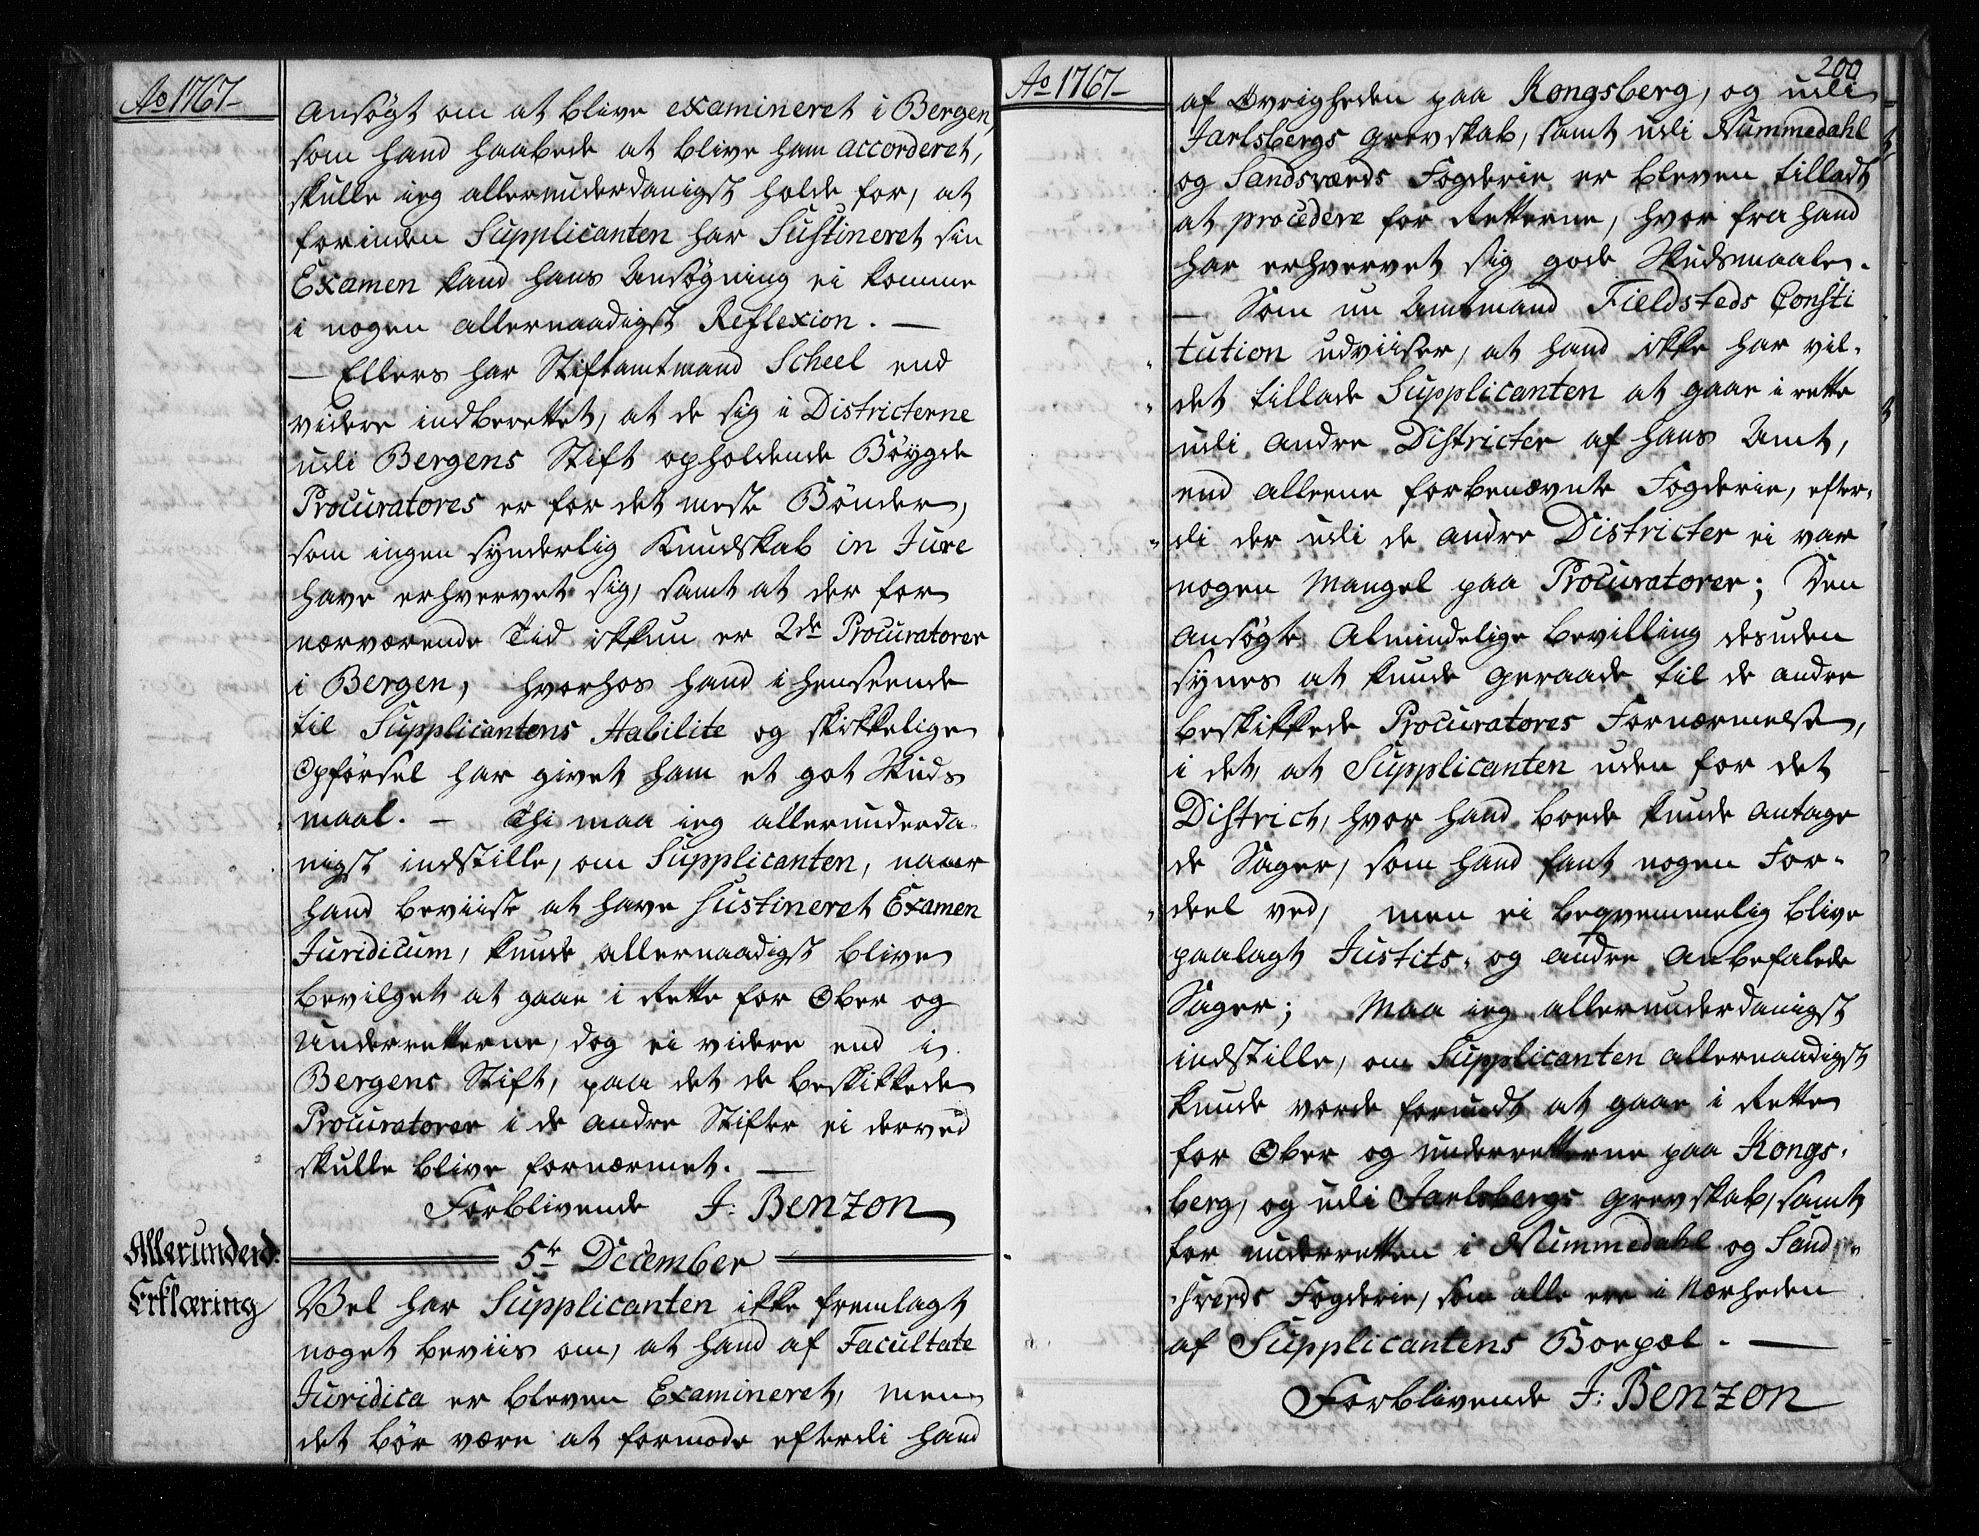 Ao 1767-
Ansøgt om at blive examineret i Bergen,
som hand haabede at blive ham accorderet,
skulle ieg allerunderdanigst holde for, at
forinden Supplicanten har Sustineret sin
Examen kand hans Ansøgning ei komme
i nogen allernaadigst Reflexion. —
— Ellers har Stiftamtmand Scheel end
videre indberettet, at de sig i Districterne
udi Bergens Stift opholdende Bøygde
Procuratores er for det meste Bønder,
som ingen synderlig Kundskab in Jure
have erhvervet sig, samt at der for
nærværende Tid ikkun er 2de Procuratorer
i Bergen, hvorhos hand i henseende
til Supplicantens Habilite og skikkelige
Opførsel har givet ham et got Skuds
maal. — Thi maa ieg allerunderda-
nigst indstille, om Supplicanten, naar
hand beviise at have Sustineret Examen
Juridicum, kunde allernaadigst blive
bevilget at gaae i Rette for Ober og
Underretterne, dog ei videre end i
Bergens Stift, paa det de beskikkede
Procuratorer i de andre Stifter ei derved
skulle blive fornærmet. —
Forblivende J: Benzon
Allerunderd:
Erklæring
5te December
Vel har Supplicanten ikke fremlagt
noget beviis om, at hand af Facultate
Juridica er bleven Examineret, men
det bør være at formode efterdi hand
Ao 1767-
200
af Øvrigheden paa Kongsberg, og udi
Jarlsbergs grevskab, samt udi Nummedahl
og Sandsværds Fogderie er bleven tilladt
at procedere for Retterne, hvor fra hand
har erhvervet sig gode Skudsmaale.
— Som nu Amtmand Fieldsteds Consti
tution udviiser, at hand ikke har vil-
det tillade Supplicanten at gaae i rette
udi andre Districter af hans Amt,
end alleene forbenævnte Fogderie, efter-
di der udi de andre Districter ei var
nogen Mangel paa Procuratorer; Den
ansøgte Almindelige bevilling desuden
synes at kunde geraade til de andre
beskikkede Procuratores Fornærmelse,
i det, at Supplicanten uden for det
District, hvor hand boede kunde antage
de Sager, som hand fant nogen For-
deel ved, men ei beqvemmelig blive
paalagt Justits- og andre anbefalede
Sager; Maa ieg allerunderdanigst
indstille, om Supplicanten allernaadigst
kunde vorde forundt at gaae i Rette
for Ober og underretterne paa Kongs-
berg, og udi Jarlsbergs grevskab, samt
for underretten i Nummedahl og Sand-
sverds Fogderie, som alle ere i Nærheden
af Supplicantens Boepæl. —
Forblivende J: Benzon